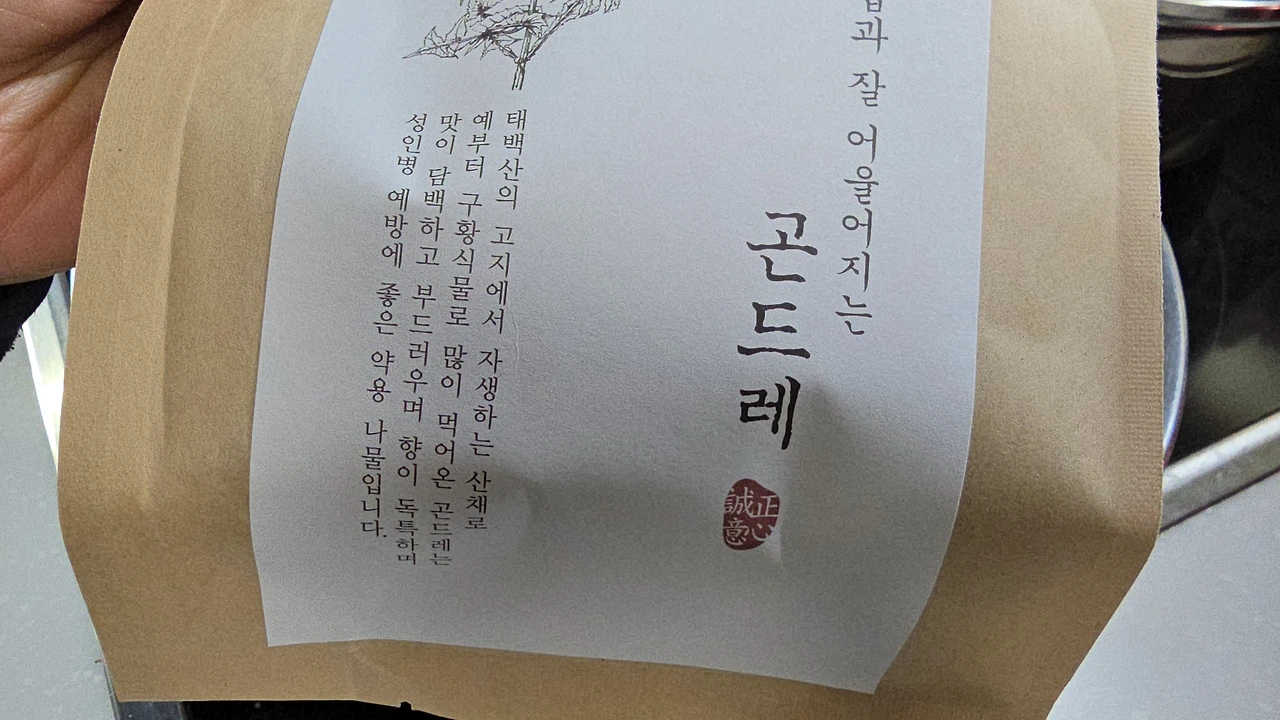 과 잘 어울어지는
곤드레
正心
誠意
태백산의 고지에서 자생하는 산채로
예부터 구황식물로 많이 먹어온 곤드레는
맛이 담백하고 부드러우며 향이 독특하며
성인병 예방에 좋은 약용 나물입니다.